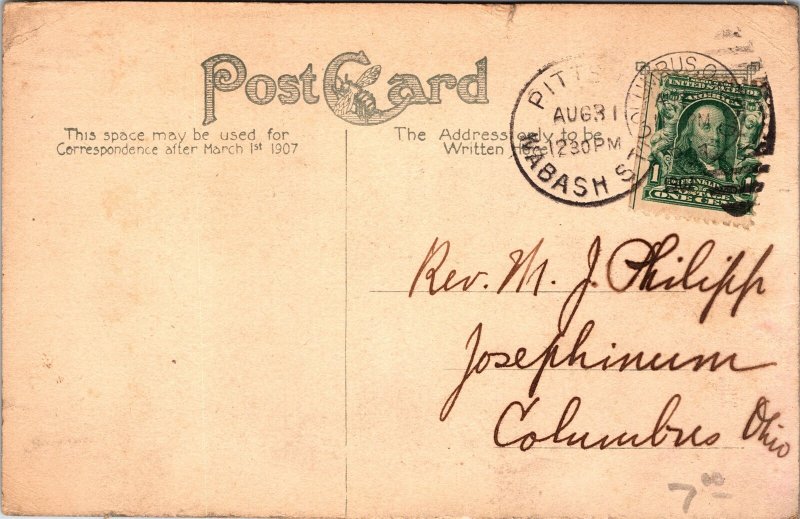 Post Card
This space may be used for
Correspondence after March 1st 1907
The Address only to be
Written
PITTS
AUG 31
1230 PM
WABASH STA
COLUMBUS O
UNITED STATES OF
1
FRANKLIN
POSTAGE
ONE CENT
Rev. M. J. Philipp
Josephinum
Columbus Ohio
7 00